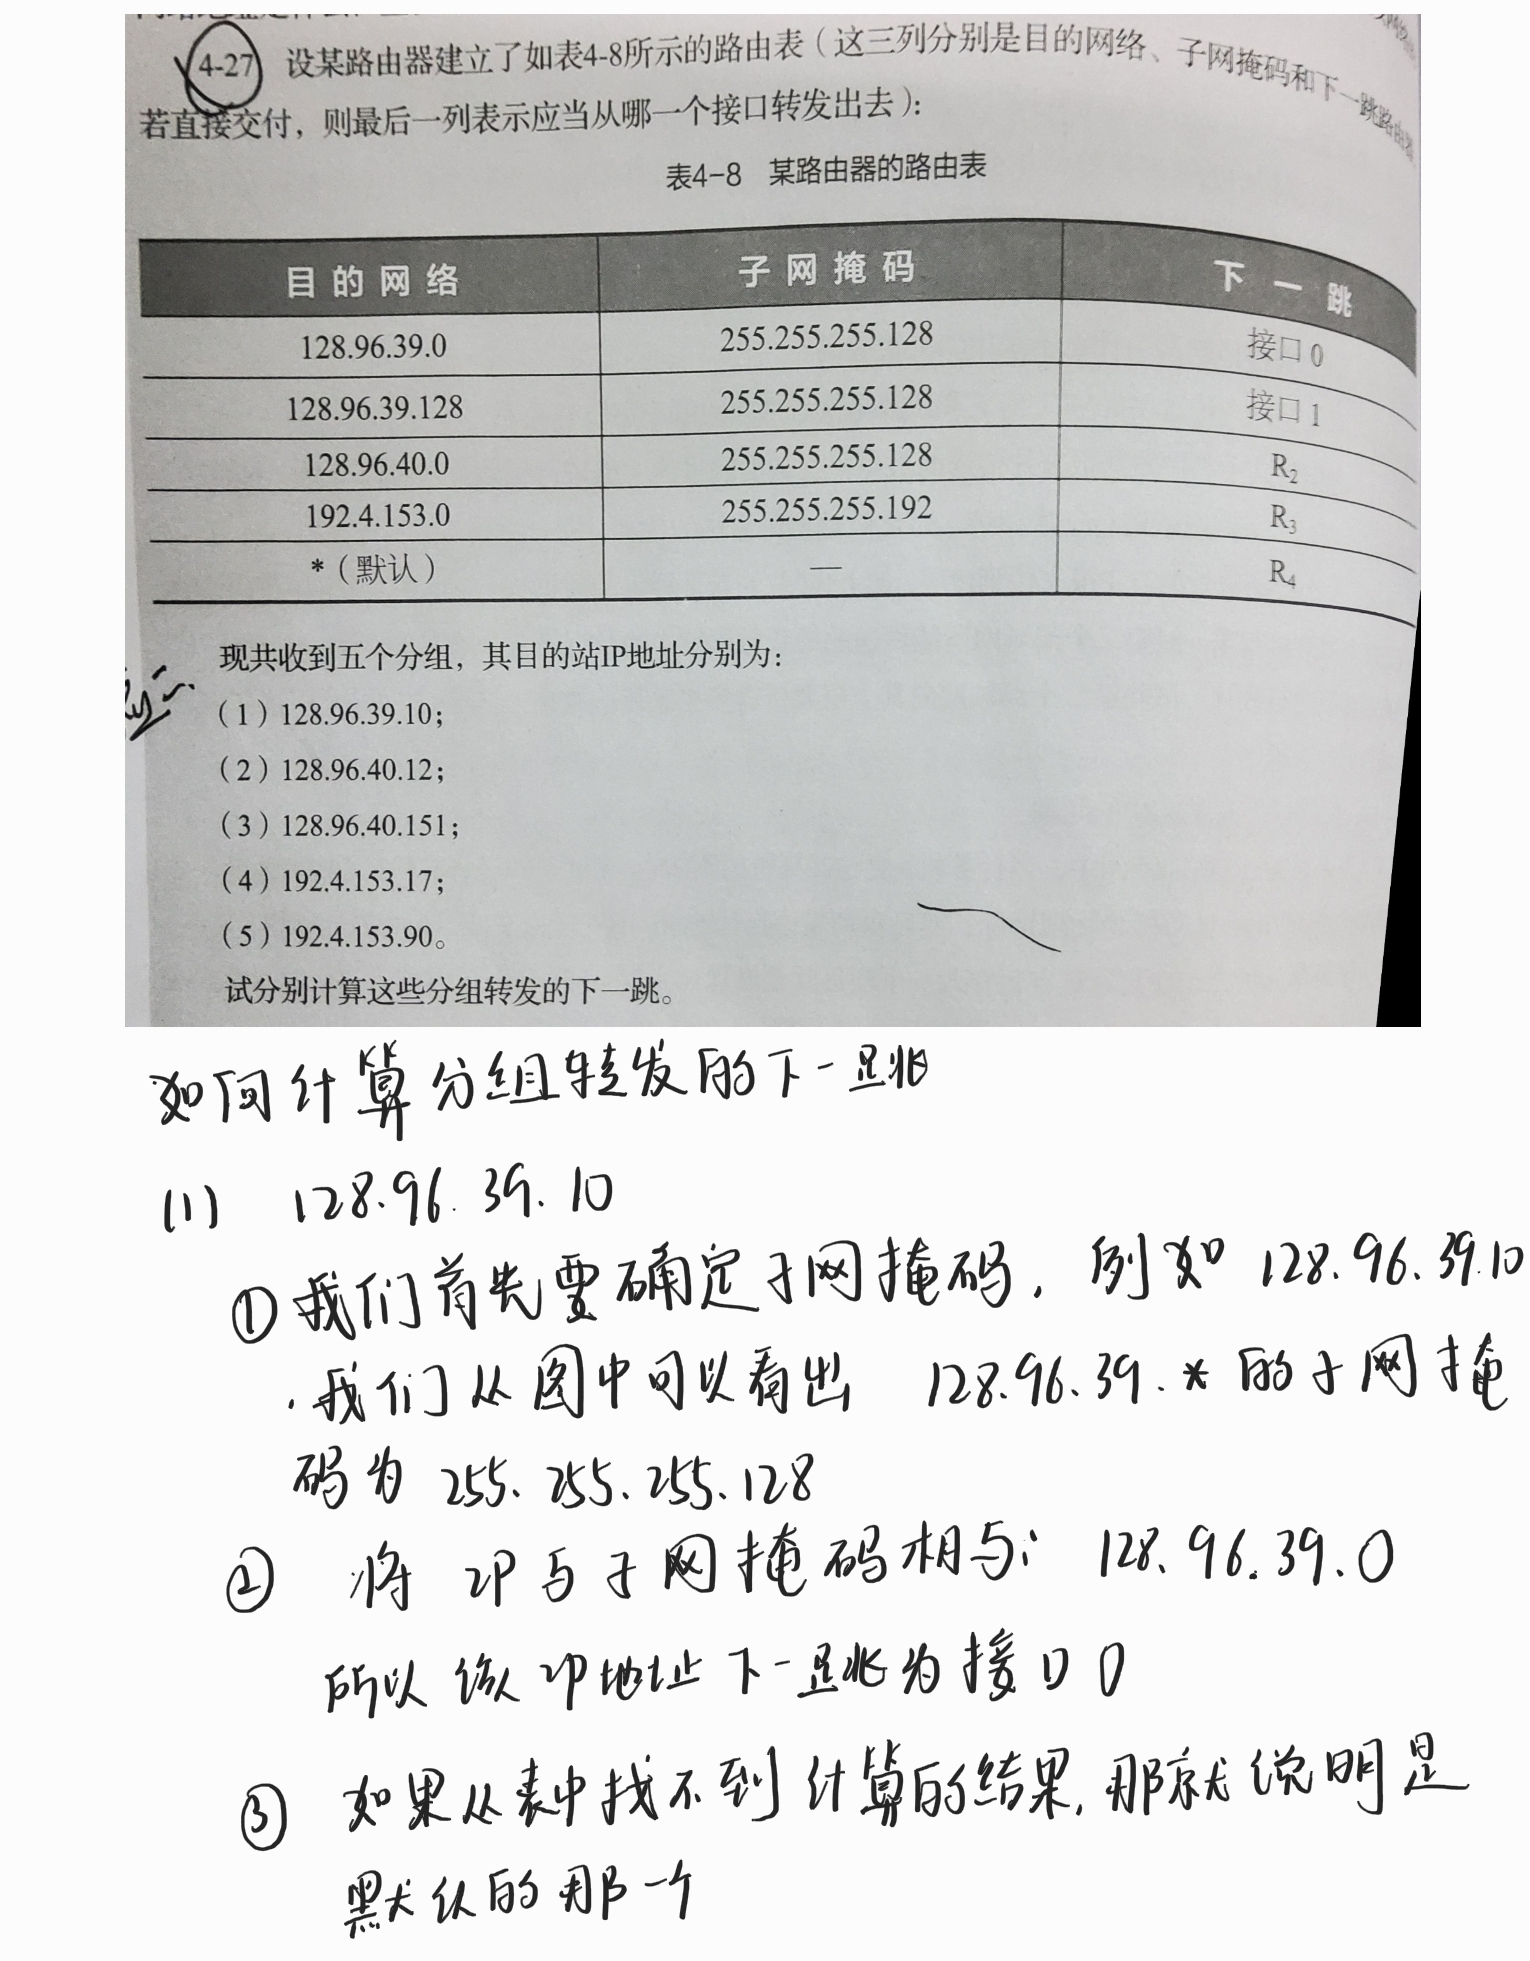 4-27 设某路由器建立了如表4-8所示的路由表（这三列分别是目的网络、子网掩码和下一跳路由器
若直接交付，则最后一列表示应当从哪一个接口转发出去）：
表4-8 某路由器的路由表
目的网络 子网掩码 下一跳
128.96.39.0 255.255.255.128 接口0
128.96.39.128 255.255.255.128 接口1
128.96.40.0 255.255.255.128 R₂
192.4.153.0 255.255.255.192 R₃
*（默认） — R₄
现共收到五个分组，其目的站IP地址分别为：
（1）128.96.39.10；
（2）128.96.40.12；
（3）128.96.40.151；
（4）192.4.153.17；
（5）192.4.153.90。
试分别计算这些分组转发的下一跳。
如何计算分组转发的下一跳
(1) 128.96.39.10
① 我们首先要确定子网掩码，例如 128.96.39.10
，我们从图中可以看出 128.96.39.* 的子网掩
码为 255.255.255.128
② 将 IP 与子网掩码相与： 128.96.39.0
所以该 IP 地址下一跳为接口 0
③ 如果从表中找不到计算的结果，那就说明是
默认的那一个